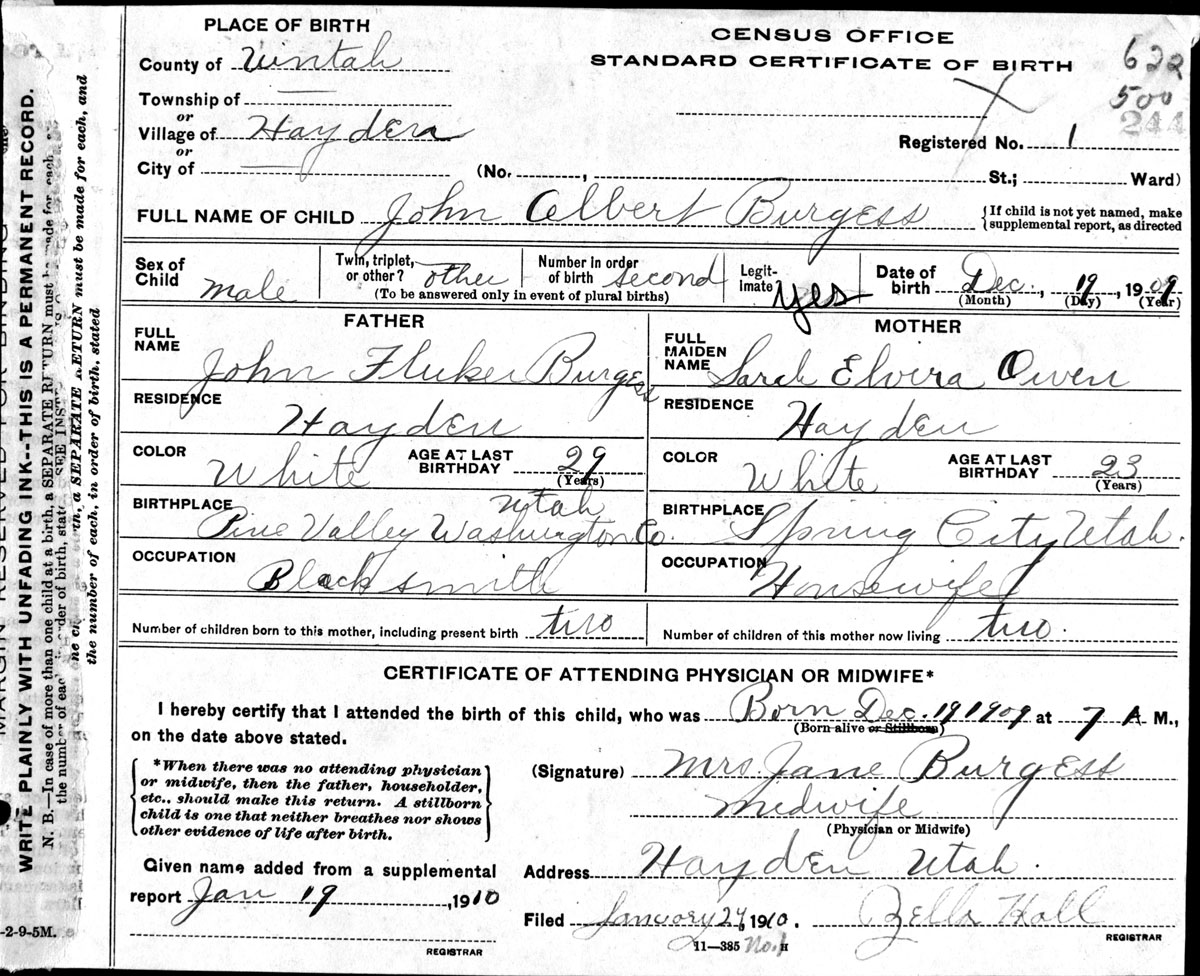 PLACE OF BIRTH
CENSUS OFFICE
STANDARD CERTIFICATE OF BIRTH
622
500
244
County of Uintah
Township of
or
Village of Hayden
or
City of
Registered No. 1
(No. , St.; Ward)
FULL NAME OF CHILD John Albert Burgess
{If child is not yet named, make
supplemental report, as directed
Sex of Child male
Twin, triplet, or other? other
Number in order of birth second
(To be answered only in event of plural births)
Legit-imate yes
Date of birth Dec. , 19 , 1909
(Month) (Day) (Year)
FATHER
MOTHER
FULL NAME John Fluker Burgess
FULL MAIDEN NAME Sarah Elvira Owen
RESIDENCE Hayden
RESIDENCE Hayden
COLOR White
AGE AT LAST BIRTHDAY 29
(Years)
COLOR White
AGE AT LAST BIRTHDAY 23
(Years)
BIRTHPLACE Pine Valley Washington Co. Utah
BIRTHPLACE Spring City Utah.
OCCUPATION Blacksmith
OCCUPATION Housewife
Number of children born to this mother, including present birth two
Number of children of this mother now living two.
CERTIFICATE OF ATTENDING PHYSICIAN OR MIDWIFE*
I hereby certify that I attended the birth of this child, who was Born Dec. 19 1909 at 7 A M.,
(Born alive or Stillborn)
on the date above stated.
*When there was no attending physician
or midwife, then the father, householder,
etc., should make this return. A stillborn
child is one that neither breathes nor shows
other evidence of life after birth.
(Signature) Mrs Jane Burgess
Midwife
(Physician or Midwife)
Given name added from a supplemental
report Jan 19 , 1910
REGISTRAR
Address Hayden Utah.
Filed January 24, 1910. Zella Hall
REGISTRAR
11—385 No. 1 H
MARGIN RESERVED FOR BINDING
WRITE PLAINLY WITH UNFADING INK--THIS IS A PERMANENT RECORD.
N. B.—In case of more than one child at a birth, a SEPARATE RETURN must be made for each, and
the number of each, in order of birth, stated
a SEPARATE RETURN must be made for each, and
the number of each, in order of birth, stated
-2-9-5M.